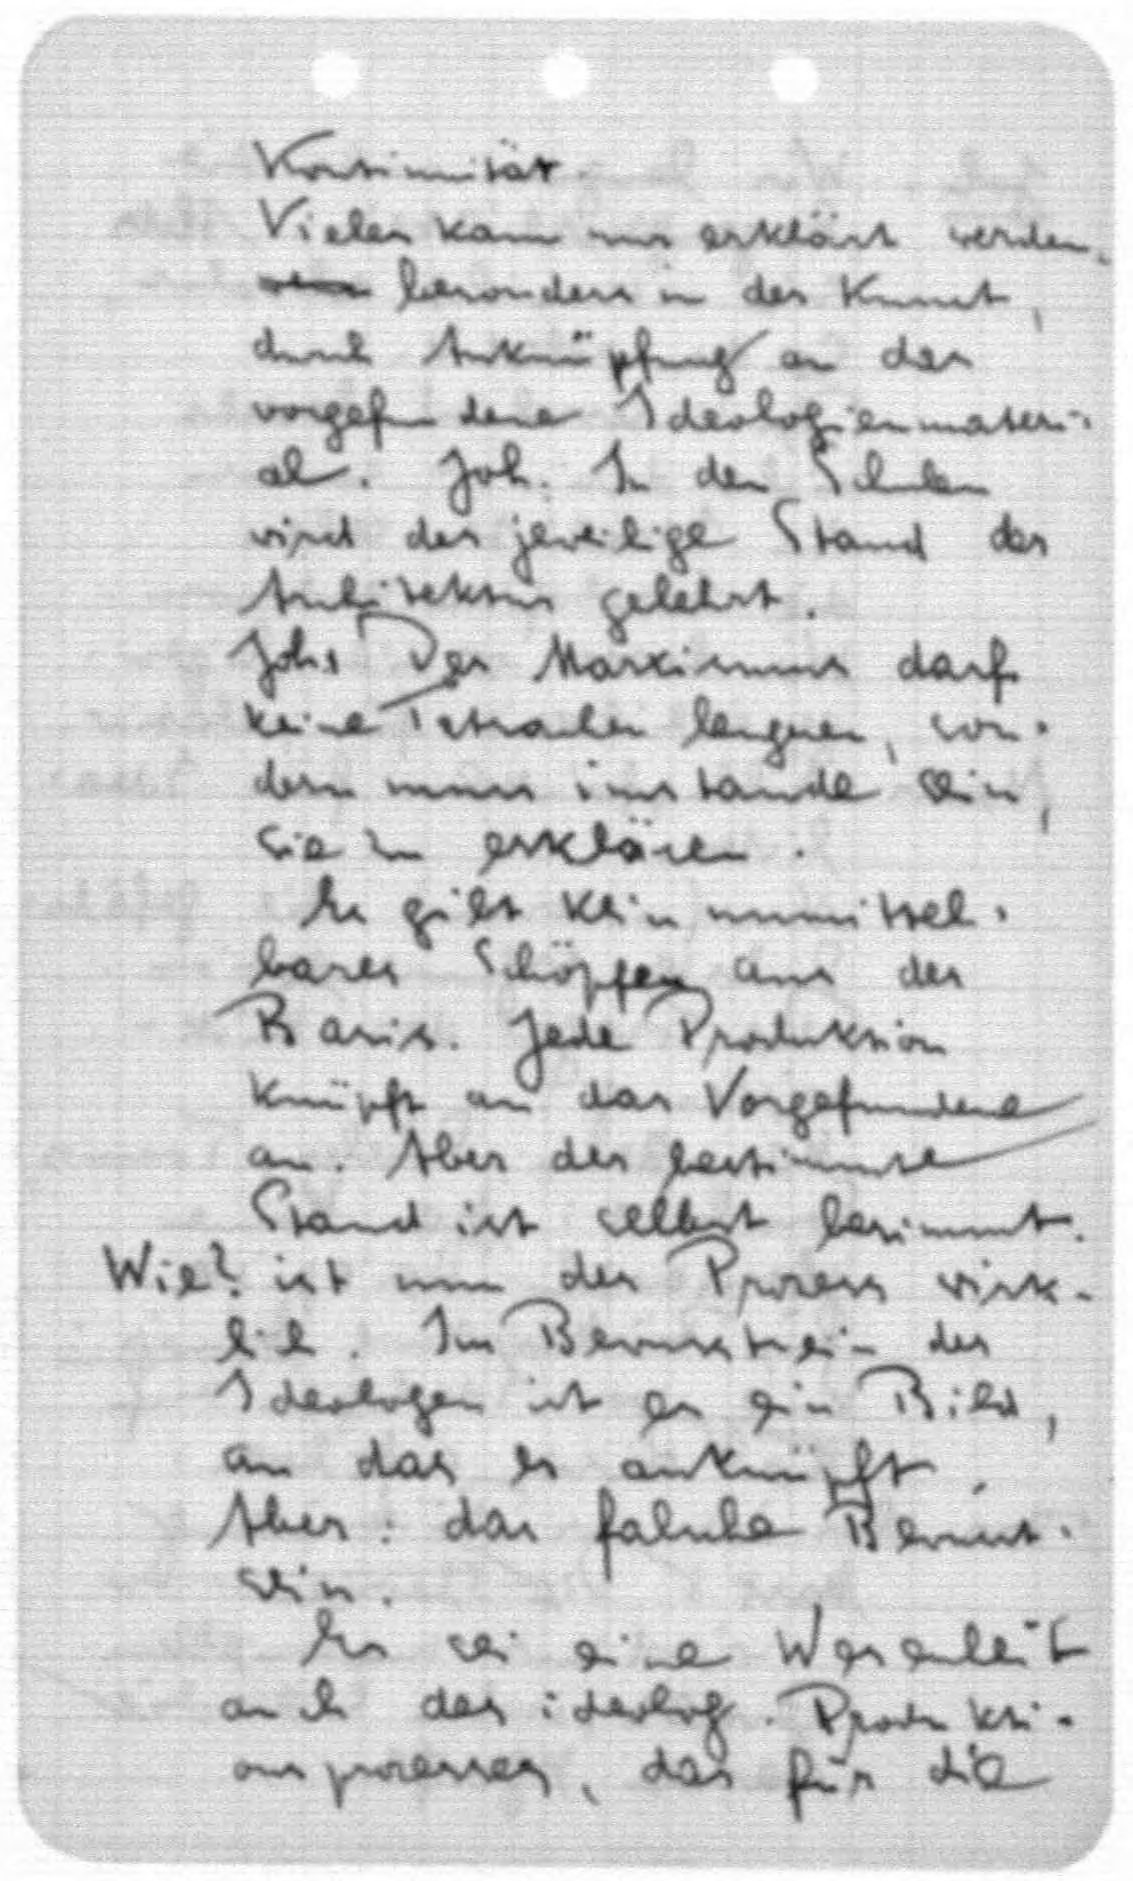 Kontinuität.
Vieles kann nur erklärt werden,
besonders in der Kunst,
durch Anknüpfung an das
vorgefundene Ideologienmateri-
al. Joh. In den Schulen
wird der jeweilige Stand der
Architektur gelehrt.
Joh: Der Marxismus darf
keine Tatsachen leugnen, son-
dern muss imstande sein,
sie zu erklären.
Es gibt kein unmittel-
bares Schöpfen aus der
Basis. Jede Produktion
knüpft an das Vorgefundene
an. Aber der bestimmte
Stand ist selbst bestimmt.
Wie? ist nun der Prozess wirk-
lich. Im Bewusstsein des
Ideologen ist es ein Bild,
an das er anknüpft.
Aber: das falsche Bewusst-
sein.
Es sei eine Wesenheit
auch des ideolog. Produkti-
onsprozesses, dass für die